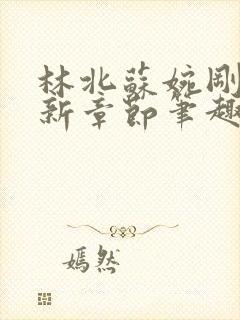 林北蘇婉剛
新章節筆趣
嫣然